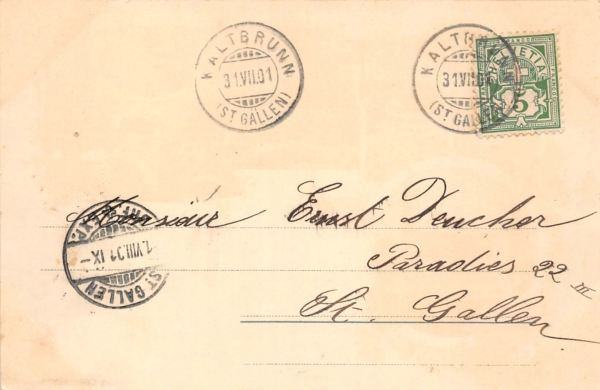 KALTBRUNN
31.VII.01
(ST GALLEN)
KALTBRUNN
31.VII.01
(ST GALLEN)
FRANCO
HELVETIA
5
Monsieur Ernst Deucher
Paradies 22 III
St. Gallen
1.VIII.01 IX-
ST GALLEN